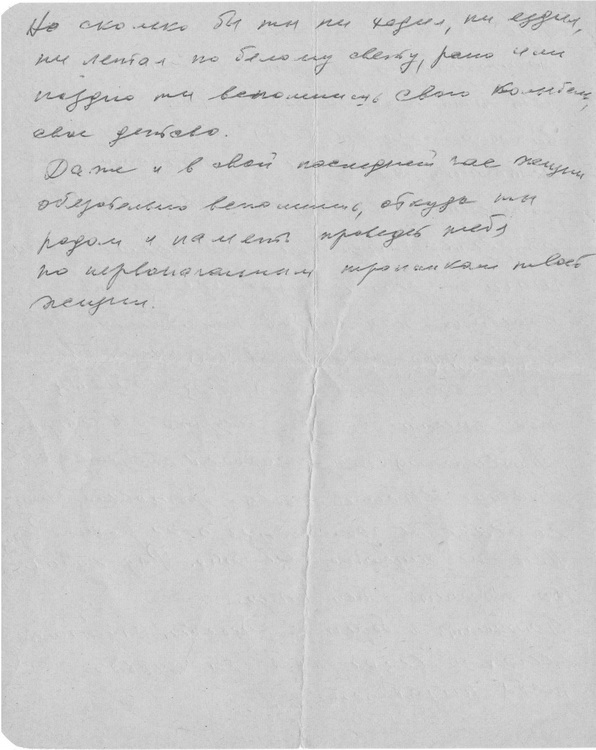 Но сколько бы ты ни ходил, ни ездил,
ни летал по белому свету, рано или
поздно ты вспомнишь свою колыбель,
свое детство.
Даже и в свой последний час жизни
обязательно вспомнишь, откуда ты
родом и память проведет тебя
по первоначальным тропинкам твоей
жизни.